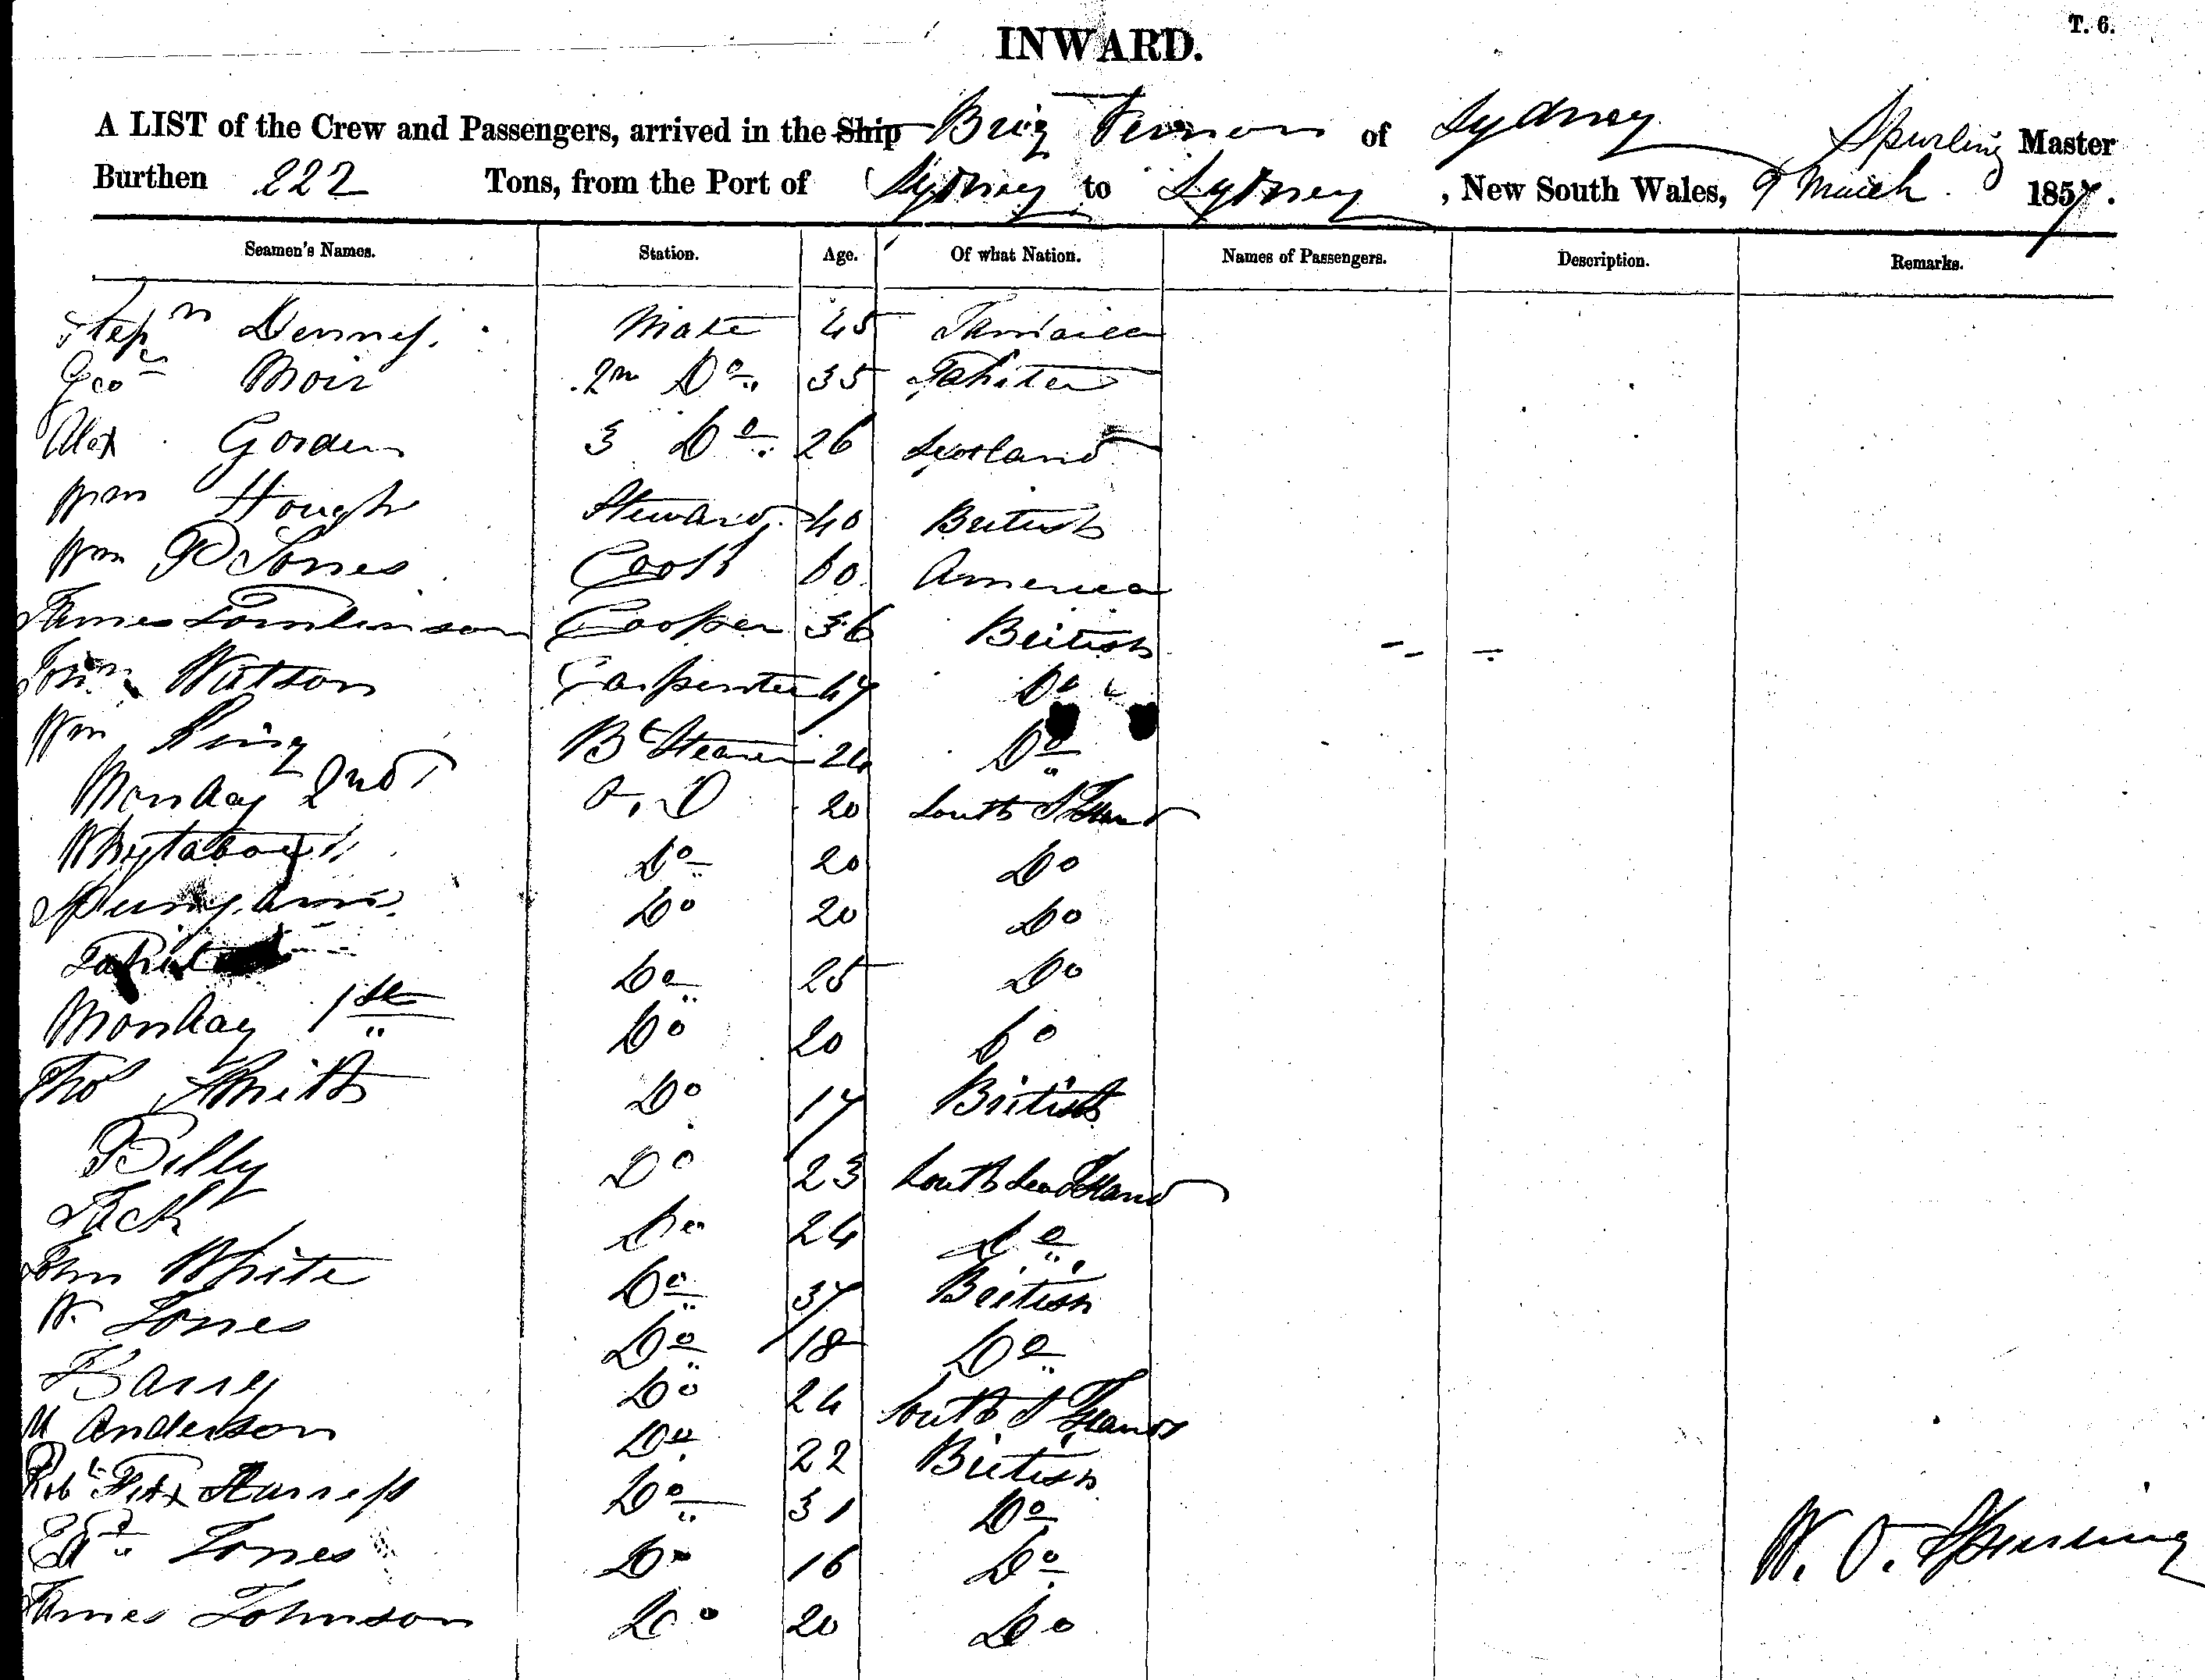 T. 6.
INWARD.
A LIST of the Crew and Passengers, arrived in the Ship Brig Vernon of Sydney Spurling Master
Burthen 222 Tons, from the Port of Sydney to Sydney, New South Wales, 9 March 1857.
Seamen's Names. Station. Age. Of what Nation. Names of Passengers. Description. Remarks.
Stepn Denny Mate 45 Jamaica
Geo Moir 2n Do 35
Alex Gorden 3 Do 26 Scotland
Wm Hough Steward 40 British
Wm P Jones Cook 60 America
James Tomlinson Cooper 36 British
Watson Carpenter 47 Do
Wm King Bt Steerer 24 Do
Monday 2nd 20 South S Island
Do 20 Do
Do 20 Do
Do 25 Do
Monday 1st Do 20 Do
Thos Smith Do 17 British
Billy Do 23 South Sea Island
Jack Do 24 Do
John White Do 37 British
W. Jones Do 18 Do
Do 24 South S Islands
M Anderson Do 22 British
Robt Do 31 Do
Ed Jones Do 16 Do
W. O. Spurling
James Johnson Do 20 Do